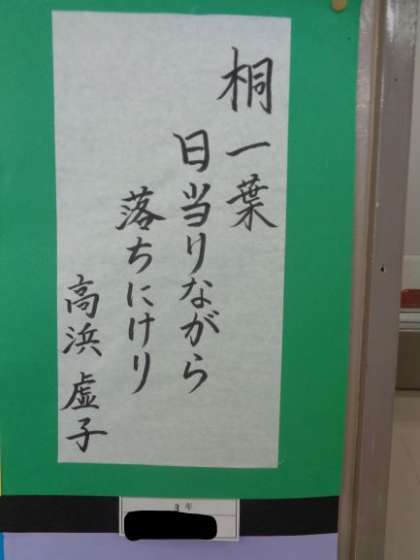 桐一葉
日当りながら
落ちにけり
高浜虚子
年